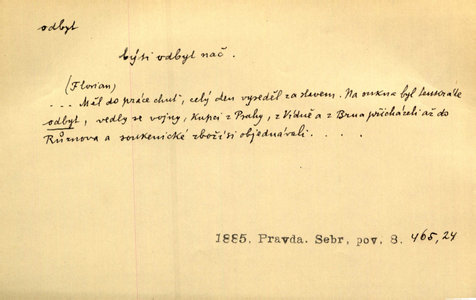 odbyt
býti odbyt nač.
(Florian)
... Měl do práce chuť, celý den vyseděl za stavem. Na sukna byl tenkráte
odbyt, vedly se vojny, kupci z Prahy, z Vídně a z Brna přicházeli až do
Růžnova a soukenické zboží si objednávali. . . . .
1885. Pravda. Sebr. pov. 8. 465,24